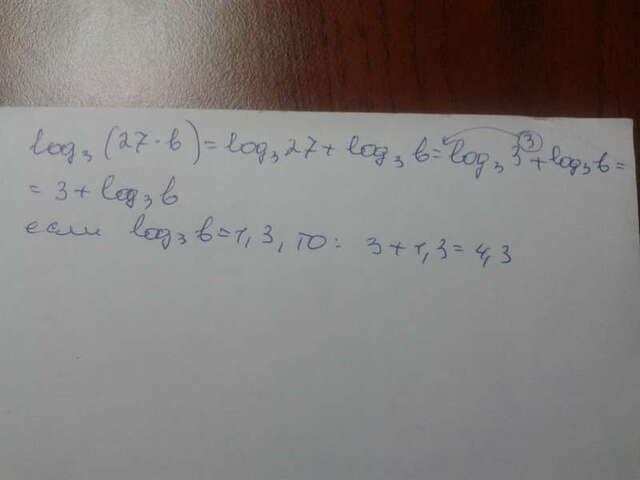 log₃(27·b)=log₃27+log₃b=log₃3³+log₃b=
=3+log₃b
если log₃b=1,3, то: 3+1,3=4,3